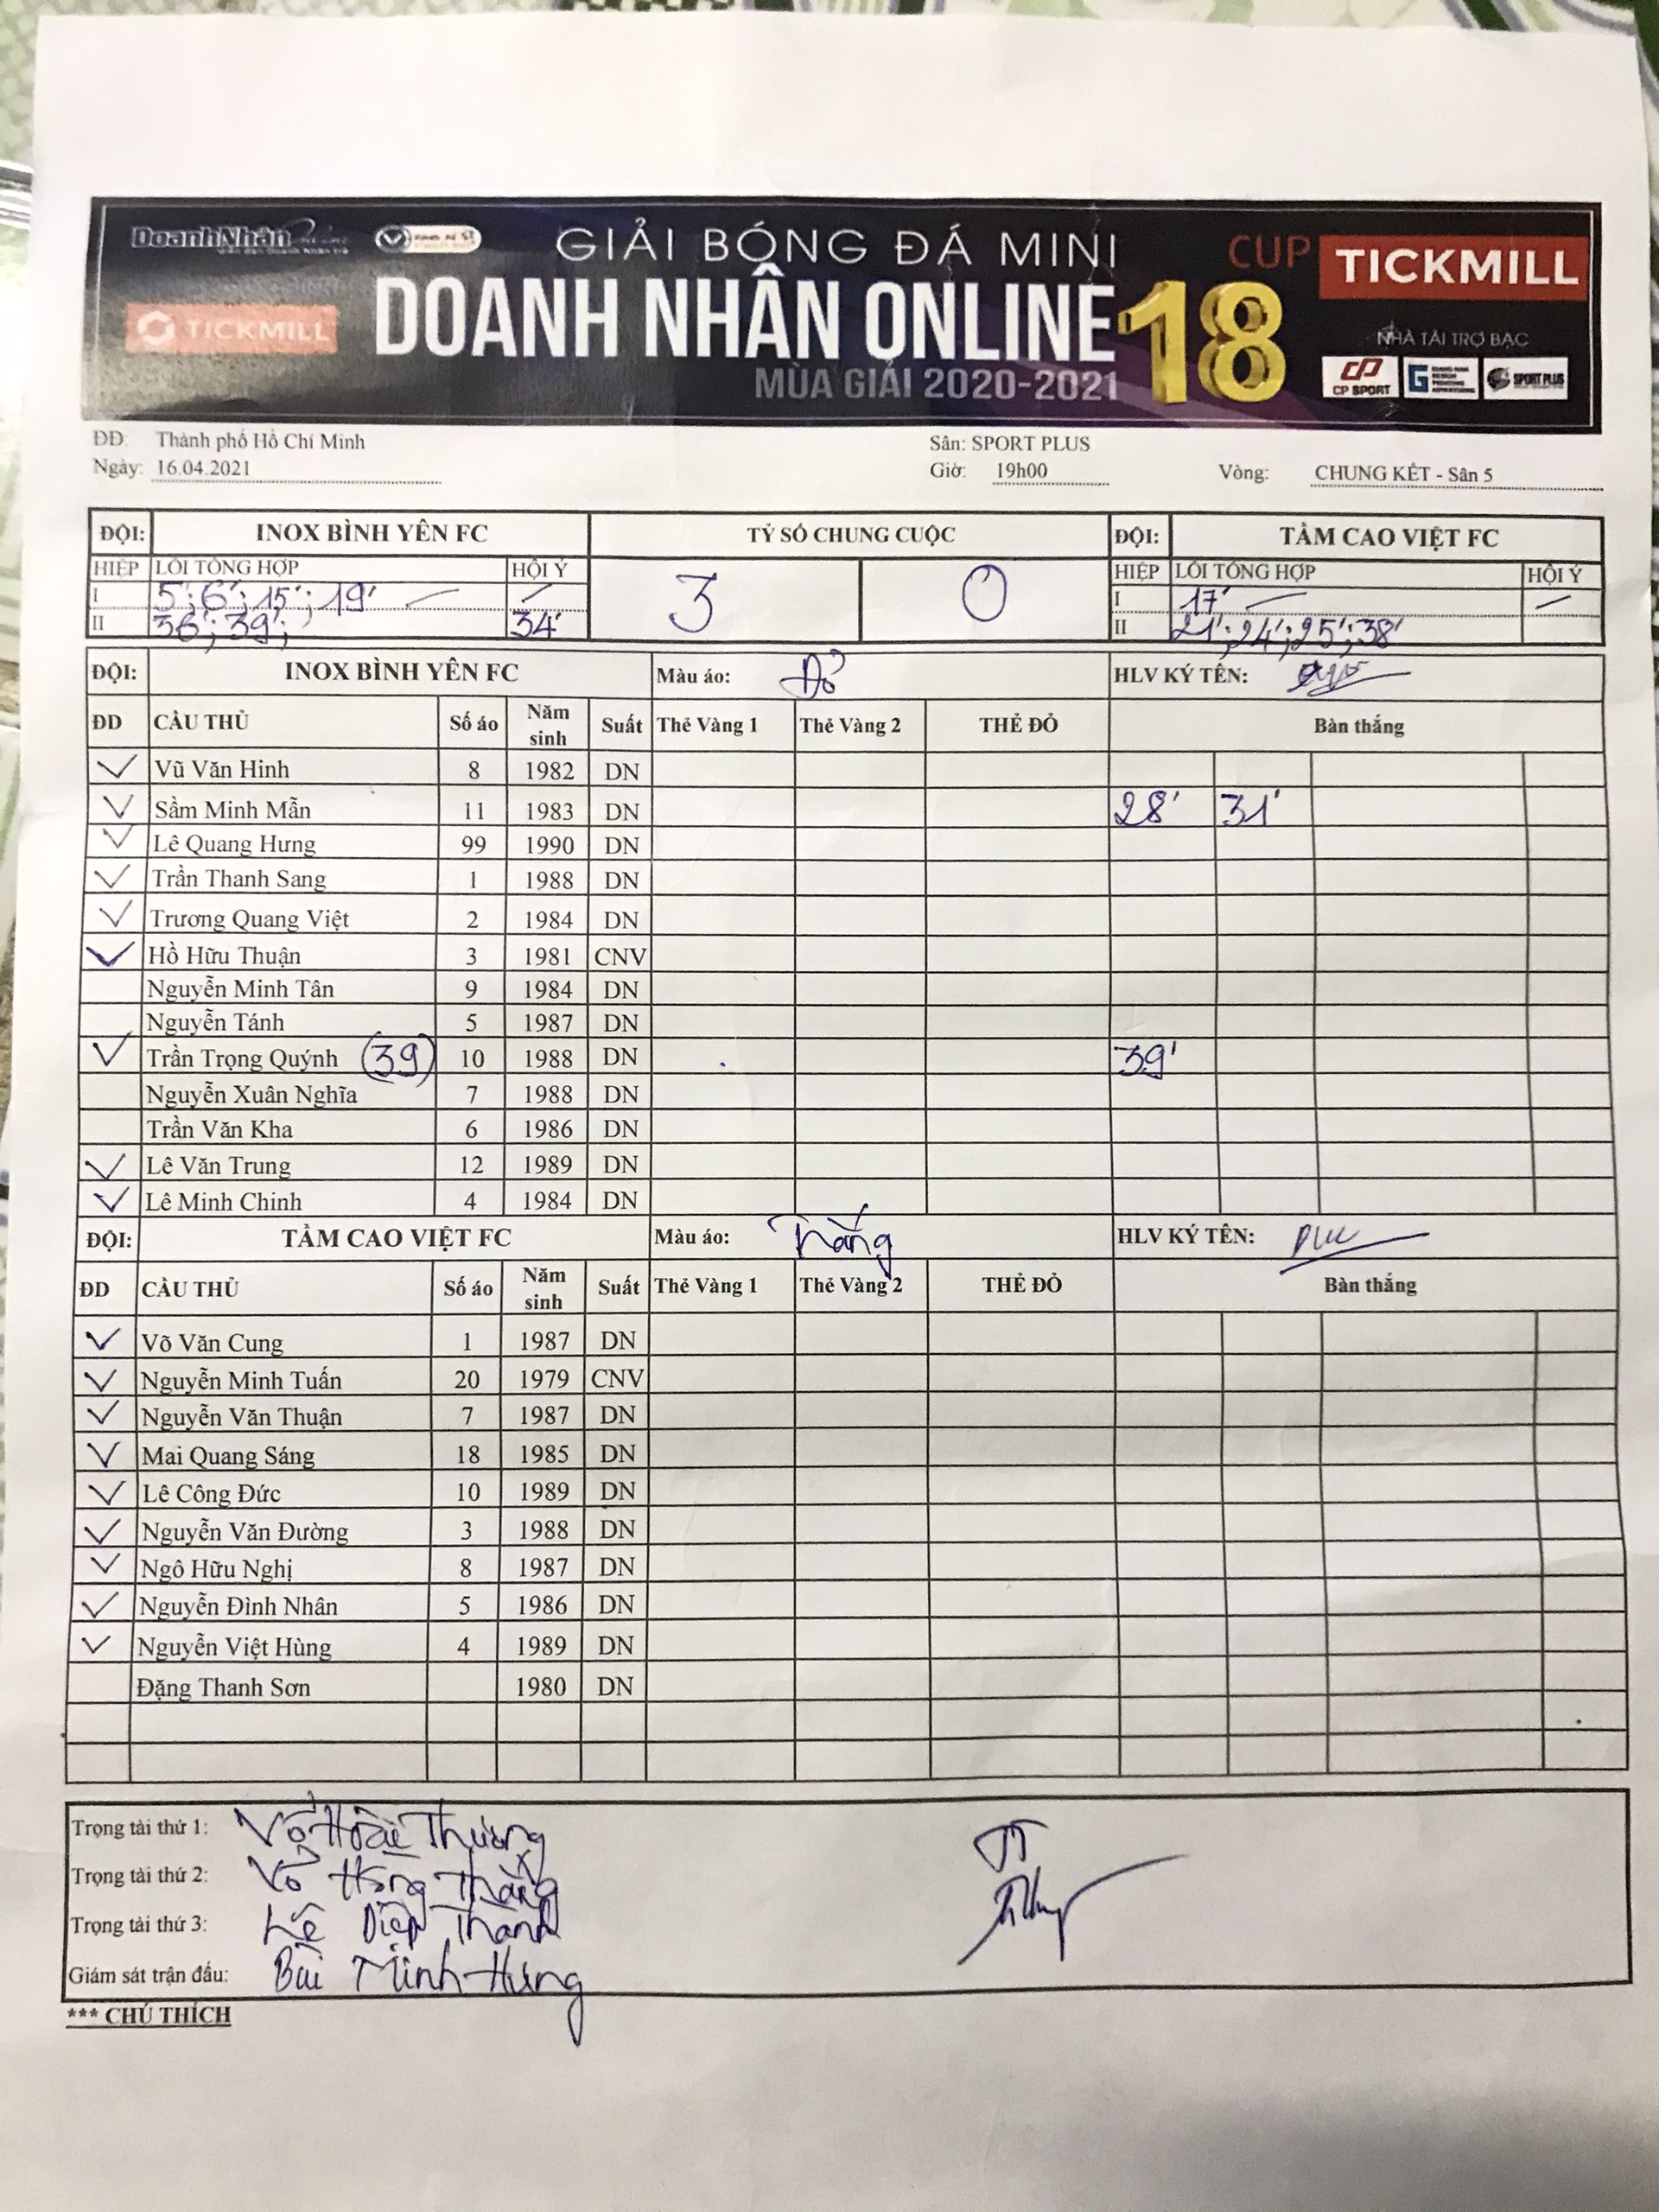 DoanhNhân Online
TICKMILL
GIẢI BÓNG ĐÁ MINI
DOANH NHÂN ONLINE 18
MÙA GIẢI 2020-2021
CUP TICKMILL
NHÀ TÀI TRỢ BẠC
CP SPORT
SPORT PLUS
ĐĐ: Thành phố Hồ Chí Minh Sân: SPORT PLUS
Ngày: 16.04.2021 Giờ: 19h00 Vòng: CHUNG KẾT - Sân 5
ĐỘI: INOX BÌNH YÊN FC TỶ SỐ CHUNG CUỘC ĐỘI: TẦM CAO VIỆT FC
HIỆP LỖI TỔNG HỢP HỘI Ý 3 0 HIỆP LỖI TỔNG HỢP HỘI Ý
I 5'; 6'; 15'; 19' — — I 17' — —
II 36'; 39'; 34' II 21'; 24'; 25'; 38'
ĐỘI: INOX BÌNH YÊN FC Màu áo: Đỏ HLV KÝ TÊN:
ĐD CẦU THỦ Số áo Năm sinh Suất Thẻ Vàng 1 Thẻ Vàng 2 THẺ ĐỎ Bàn thắng
Vũ Văn Hinh 8 1982 DN
Sầm Minh Mẫn 11 1983 DN 28' 31'
Lê Quang Hưng 99 1990 DN
Trần Thanh Sang 1 1988 DN
Trương Quang Việt 2 1984 DN
Hồ Hữu Thuận 3 1981 CNV
Nguyễn Minh Tân 9 1984 DN
Nguyễn Tánh 5 1987 DN
Trần Trọng Quýnh (39) 10 1988 DN 39'
Nguyễn Xuân Nghĩa 7 1988 DN
Trần Văn Kha 6 1986 DN
Lê Văn Trung 12 1989 DN
Lê Minh Chinh 4 1984 DN
ĐỘI: TẦM CAO VIỆT FC Màu áo: Trắng HLV KÝ TÊN:
ĐD CẦU THỦ Số áo Năm sinh Suất Thẻ Vàng 1 Thẻ Vàng 2 THẺ ĐỎ Bàn thắng
Võ Văn Cung 1 1987 DN
Nguyễn Minh Tuấn 20 1979 CNV
Nguyễn Văn Thuận 7 1987 DN
Mai Quang Sáng 18 1985 DN
Lê Công Đức 10 1989 DN
Nguyễn Văn Đường 3 1988 DN
Ngô Hữu Nghị 8 1987 DN
Nguyễn Đình Nhân 5 1986 DN
Nguyễn Việt Hùng 4 1989 DN
Đặng Thanh Sơn 1980 DN
Trọng tài thứ 1: Võ Hoài Thương
Trọng tài thứ 2: Võ Hồng Thắng
Trọng tài thứ 3: Lê Diệp Thanh
Giám sát trận đấu: Bùi Minh Hưng
*** CHÚ THÍCH